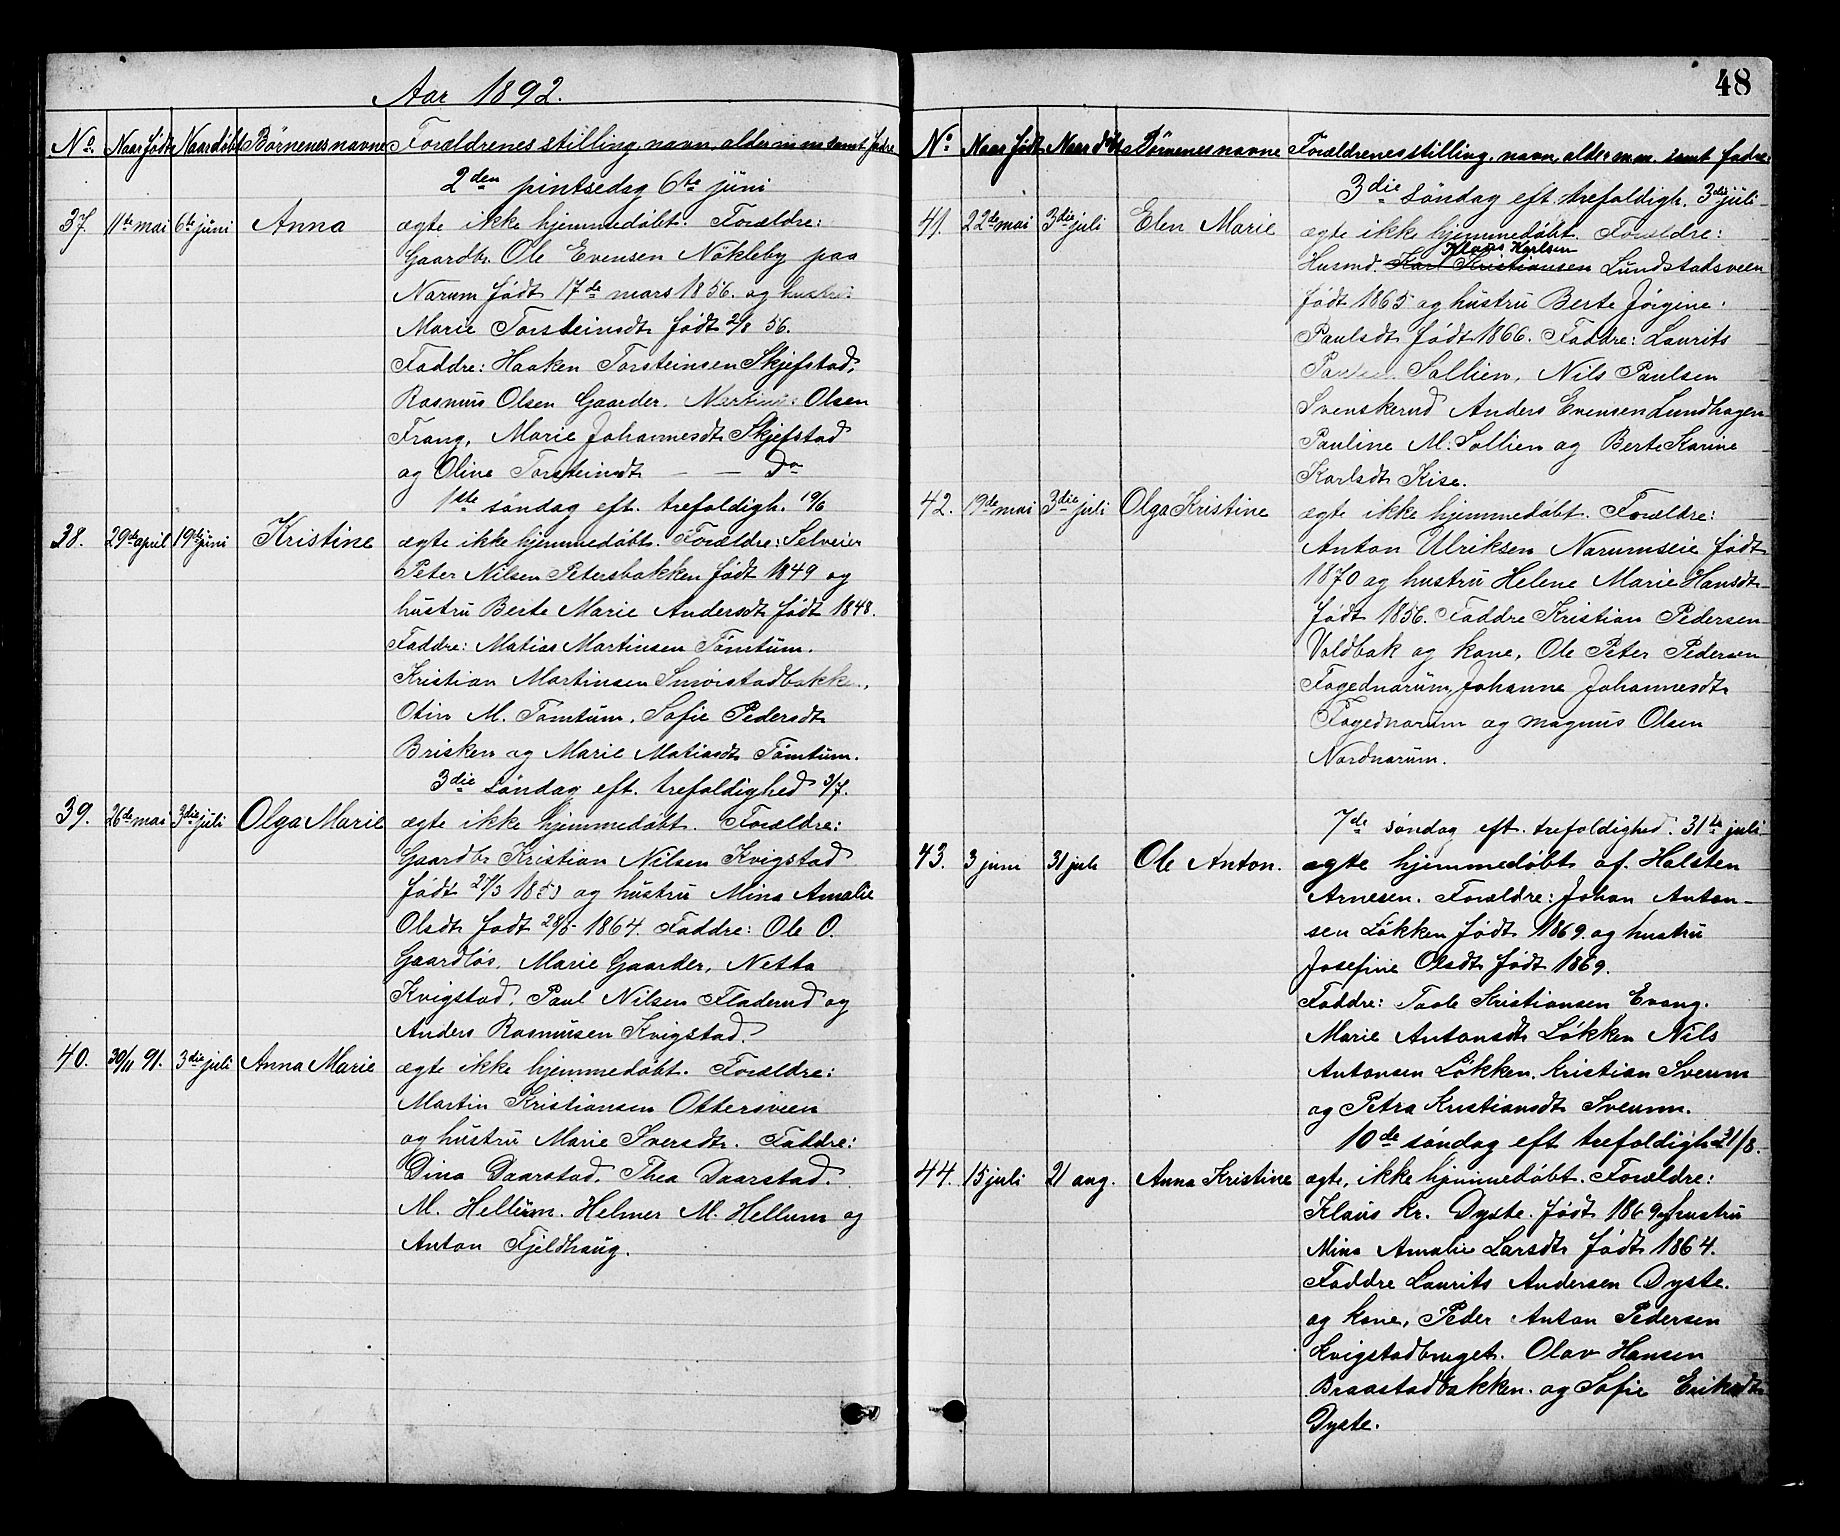 Aar 1892.
No. Naar født Naar døbt Børnenes navne Forældrenes stilling, navn, alder m.m. samt fadre
2den pintsedag 6te juni
37. 11te mai 6te juni Anna ægte ikke hjemmedøbt. Forældre:
Gaardbr. Ole Evensen Nøkleby paa
Narum født 17de mars 1856. og hustru:
Marie Torsteinsdt født 2/8 56.
Faddre: Haaken Torsteinsen Skjefstad,
Rasmus Olsen Gaarder. Olsen
Frang, Marie Johannesdt Skjefstad
og Oline Torsteindt — — Do
1ste søndag eft. trefoldigh. 19/6
38. 29de april 19de juni Kristine ægte ikke hjemmedøbt. Forældre: Selveier
Peter Nilsen Petersbakken født 1849 og
hustru Berte Marie Andersdt født 1848.
Faddre: Matias Martinsen Tømtum.
Kristian Martinsen Smørstadbakken,
Otin M. Tømtum. Sofie Pedersdt
Brisken og Marie Matiasdt Tømtum.
3die søndag eft. trefoldighed 3/7.
39. 26de mai 3die juli Olga Marie ægte ikke hjemmedøbt. Forældre:
Gaardbr Kristian Nilsen Kvigstad
født 27/3 og hustru Mina Amalie
Olsdt født 28/5 1864. Faddre: Ole O.
Gaardløs, Marie Gaarder, Netta
Kvigstad, Paul Nilsen Fladerud og
Anders Rasmusen Kvigstad.
40. 30/11 91. 3die juli Anna Marie ægte ikke hjemmedøbt. Forældre:
Martin Kristiansen Ottersveen
og hustru Marie Iversdt. Faddre:
Dina Daarstad. Thea Daarstad.
M. Hellum. Helmer M. Hellum og
Anton Fjeldhaug.
48
No Naar født Naar døbt Børnenes navne Forældrenes stilling, navn, alder m.m. samt fadre:
3die søndag eft. trefoldigh. 3die juli
41. 22de mai 3die juli Elen Marie ægte ikke hjemmedøbt. Forældre:
Klaus Karlsen
Husmd. Karl Kristiansen Lundstadsveen
født 1865 og hustru Berte Jørgine:
Paulsdt født 1866. Faddre: Laurits
Sollien, Nils Paulsen
Svenskerud Anders Evensen Lundhagen
Pauline M. Sollien og Berte Karine
Karlsdt Kise.
42. 19de mai 3die juli Olga Kristine ægte ikke hjemmedøbt. Forældre:
Anton Ulriksen Narumseie født
1870 og hustru Helene Marie Hansdt
født 1856. Faddre Kristian Pedersen
Voldbak og kone, Ole Peter Pedersen
Fogednarum, Johanne Johannesdt
Fogednarum og magnus Olsen
Nordnarum.
7de søndag eft. trefoldighed. 31te juli
43. 3 juni 31 juli Ole Anton. ægte hjemmedøbt af Halsten
Arnesen. Forældre: Johan Anton-
sen Løkken født 1869. og hustru
Josefine Olsdt født 1869.
Faddre: Taale Kristiansen Evang.
Marie Antonsdt Løkken Nils
Antonsen Løkken. Kristian Sveum
og Petra Kristiansdt Sveum.
10de søndag eft trefoldigh 21/8.
44. 15 juli 21 aug. Anna Kristine ægte, ikke hjemmedøbt. Forældre:
Klaus Kr. Dyste. født 1869 og hustru
Mina Amalie Larsdt født 1864.
Faddre Laurits Andersen Dyste.
og kone, Peder Anton Pedersen
Kvigstadbruget. Olav Hansen
Braastadbakken. og Sofie Eriksdt
Dyste.